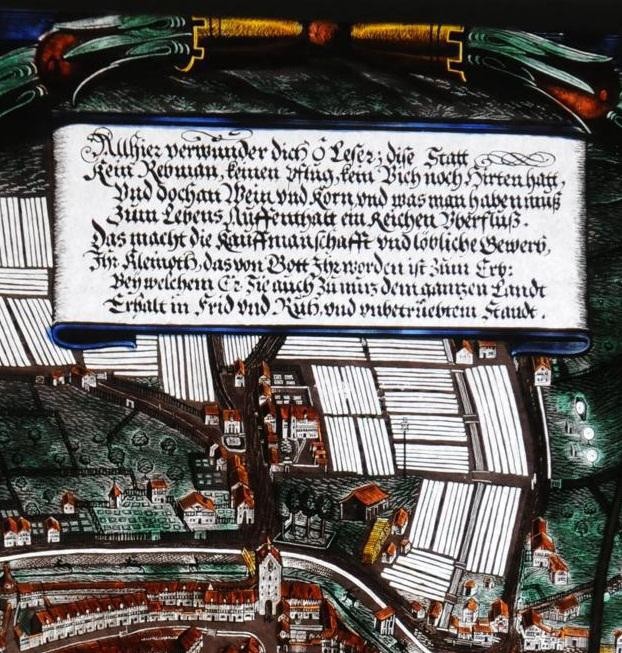 Allhier verwunder dich ô Leser; dise Statt
Kein Rebman, keinen Pflug, kein Vich noch Hirten hatt,
Vnd doch an Wein vnd Korn, vnd was man haben muß
Zum Lebens Auffenthalt ein Reichen Vberfluß.
Das macht die Kauffmanschafft vnd löbliche Gewerb,
Ihr Kleinoth, das von Gott Ihr worden ist zum Erb:
Bey welchem Er Sie auch zu nutz dem gantzen Landt
Erhalt in Frid vnd Ruh, vnd vnbetrüebtem Standt.